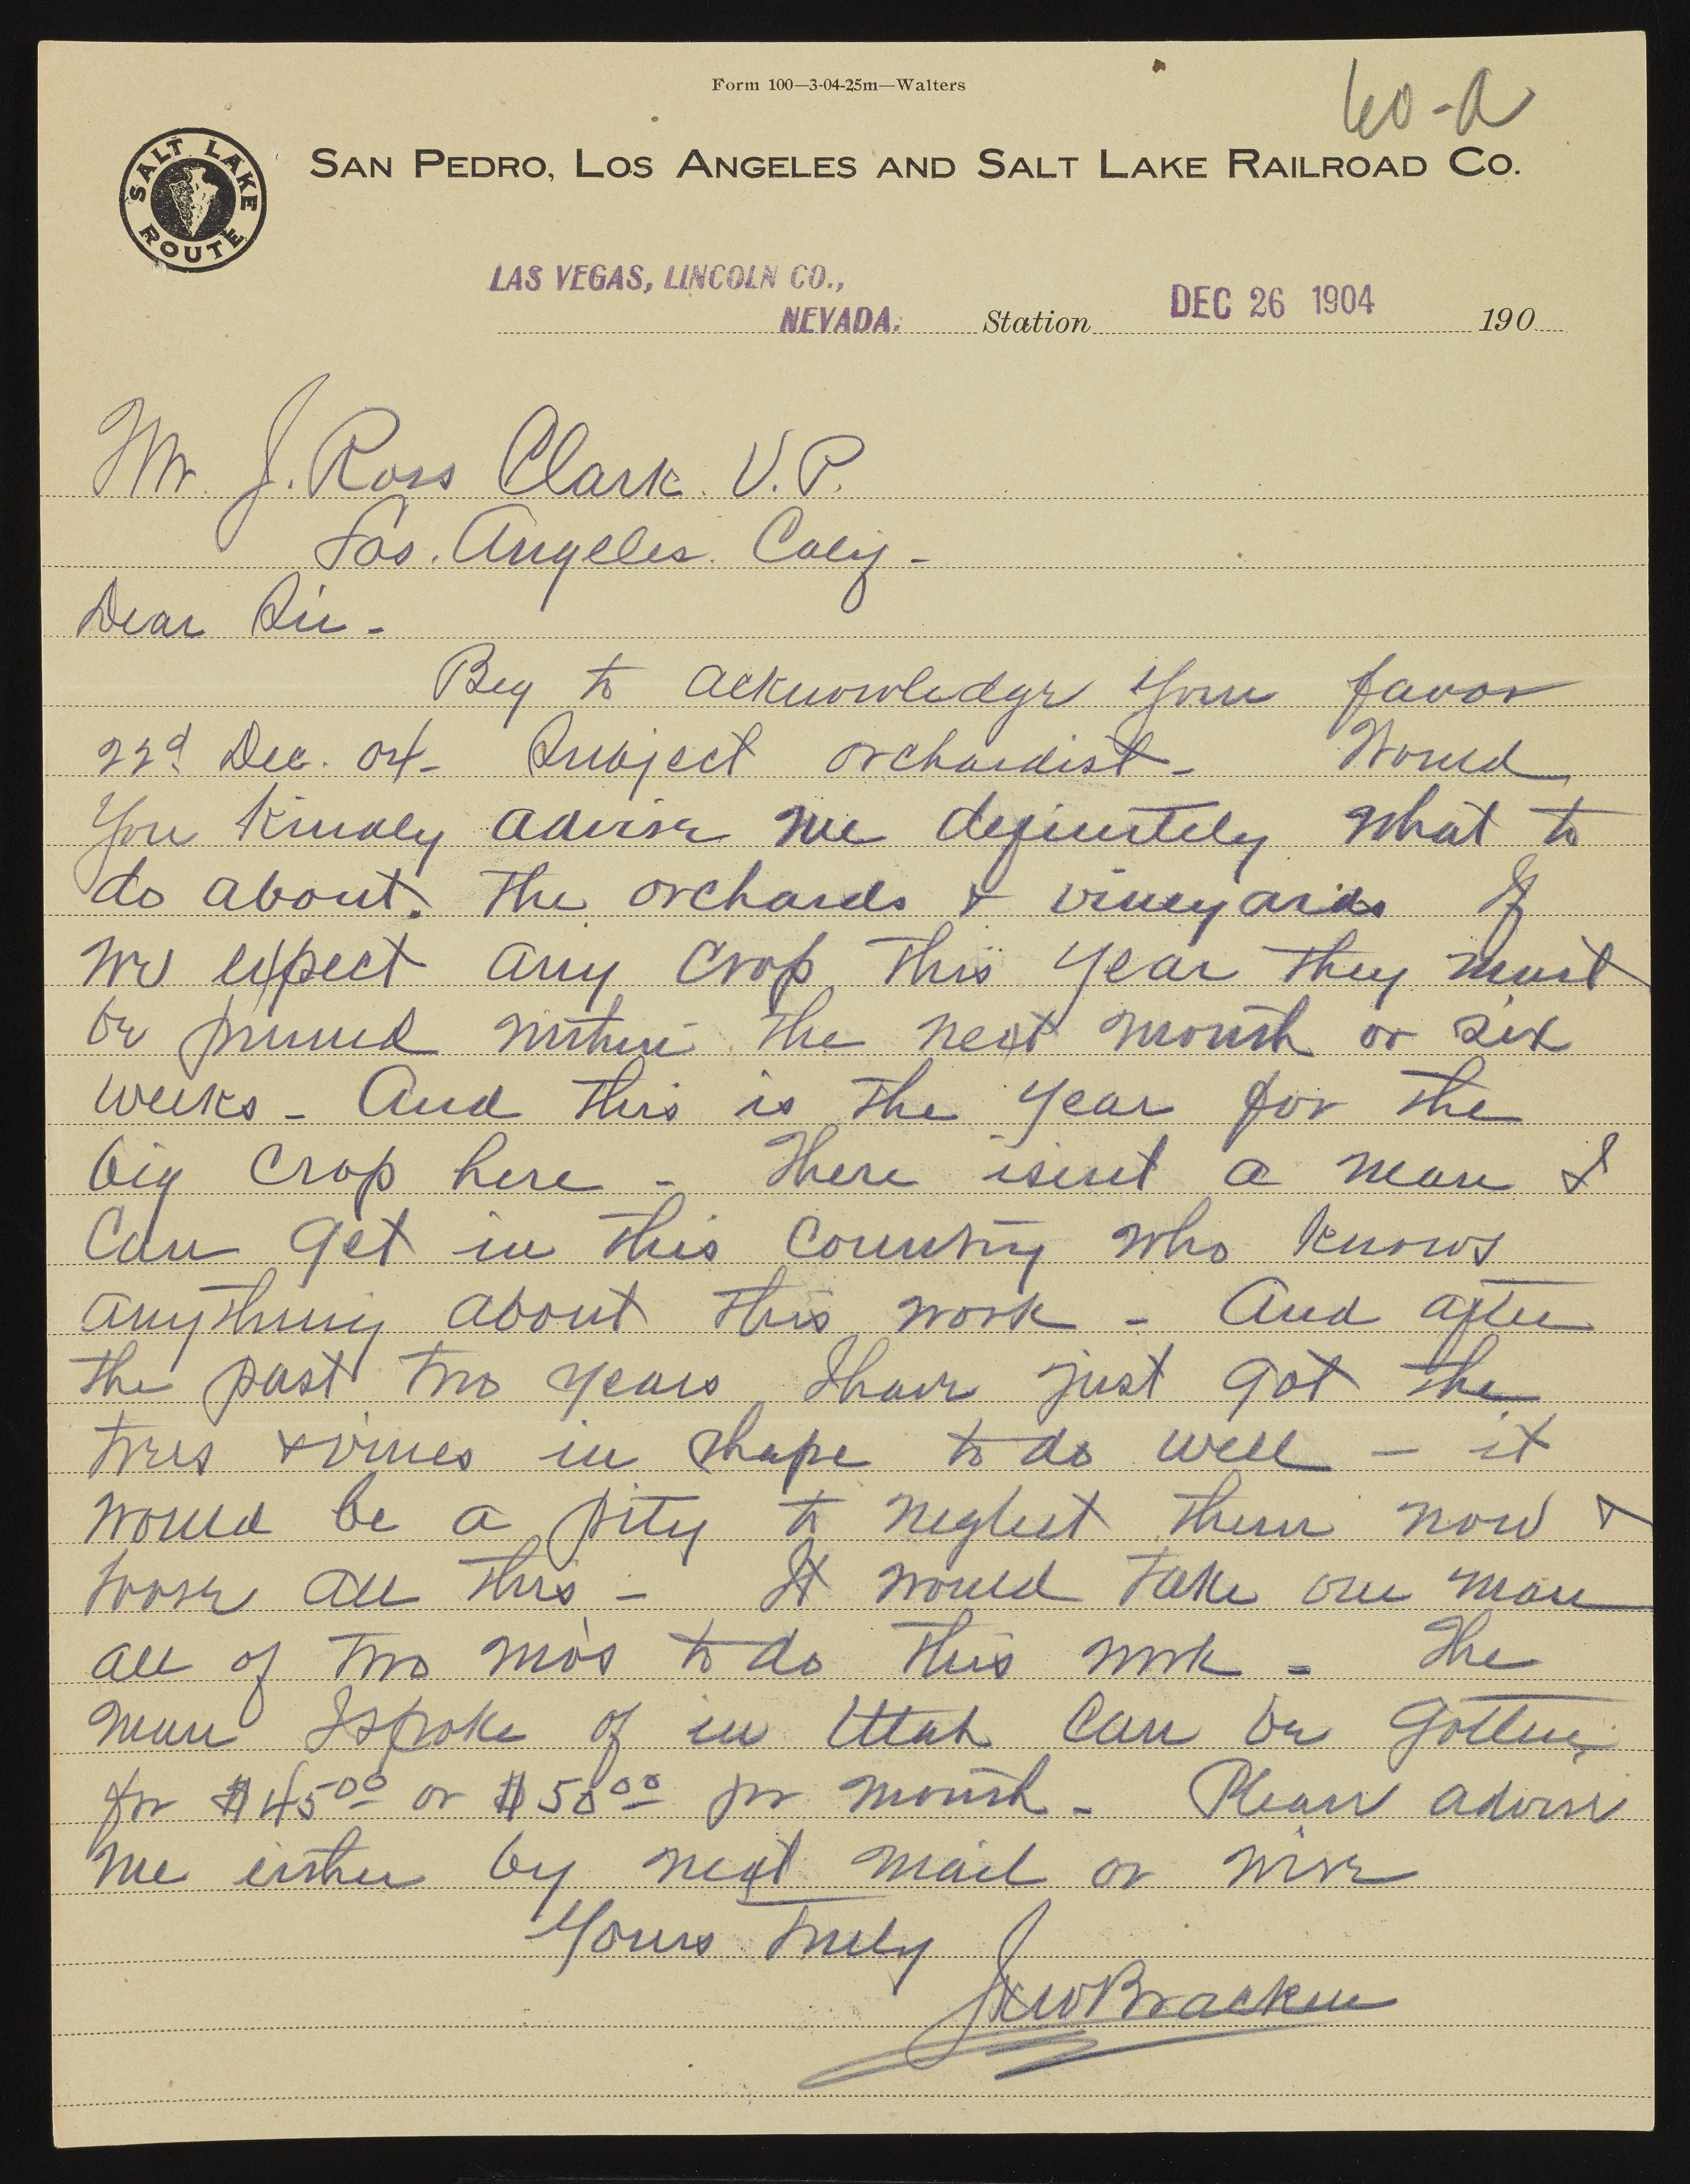 Form 100—3-04-25m—Walters
60-A
SALT LAKE ROUTE
SAN PEDRO, LOS ANGELES AND SALT LAKE RAILROAD CO.
LAS VEGAS, LINCOLN CO.,
NEVADA. Station DEC 26 1904 190
Mr. J. Ross Clark. V.P.
Los. Angeles. Calif-
Dear Sir-
Beg to acknowledge your favor
22d Dec. 04- Subject orchardist- Would
you kindly advise me definitely what to
do about. The orchards & vineyards If
we expect any crop this year they must
be pruned within the next month or six
weeks - And this is the year for the
big crop here - There isent a man I
can get in this country who knows
anything about this work - And after
the past two years I have just got the
trees & vines in shape to do well - it
would be a pity to neglect them now &
loose all this - It would take one man
all of two mo's to do this work - The
man I spoke of in Utah can be gotten
for $45.00 or $50.00 pr month - Please advise
me either by next mail or wire
Yours truly
J W Bracken